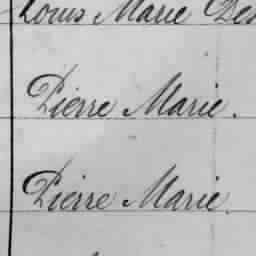 Louis Marie
Pierre Marie.
Pierre Marie.